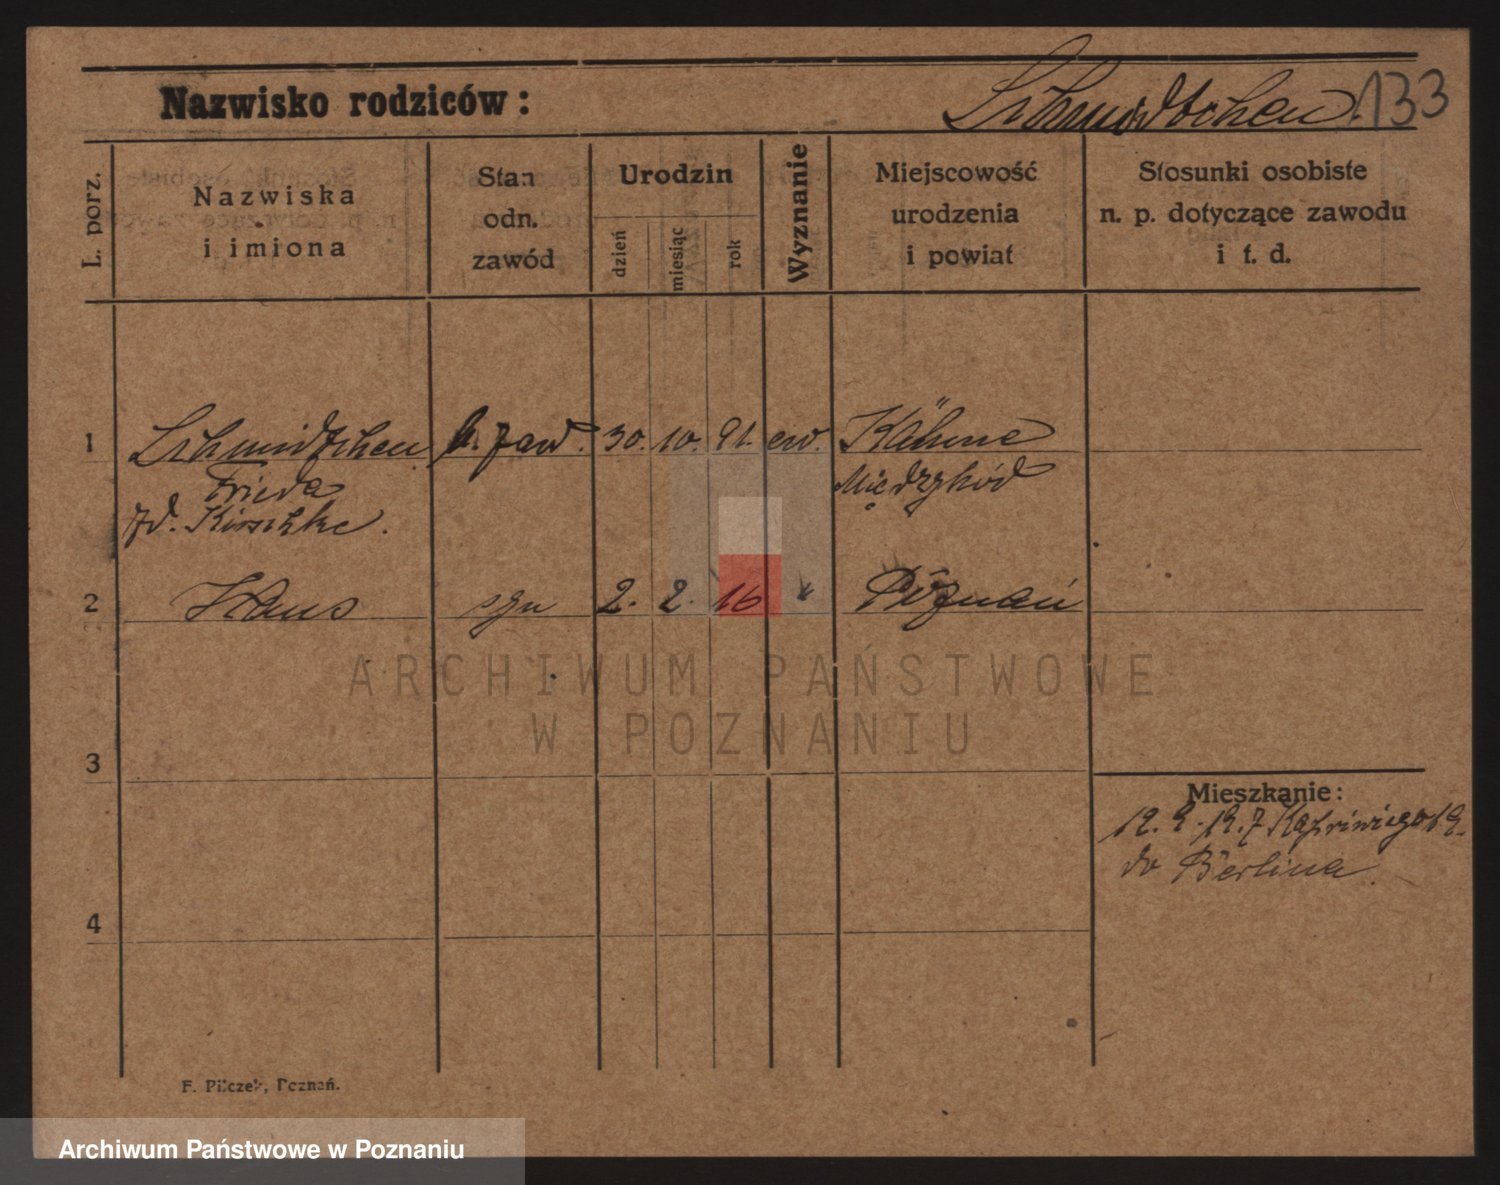 Nazwisko rodziców: Schmidtchen 133
L. porz.
Nazwiska
i imiona
Stan
odn.
zawód
Urodzin
dzień
miesiąc
rok
Wyznanie
Miejscowość
urodzenia
i powiat
Stosunki osobiste
n. p. dotyczące zawodu
i t. d.
1 Schmidtchen b. zaw. 30. 10. 91. ew. Kähme
Frieda Międzychód
zd. Kirschke.
2 Hans syn 2. 2. 16 " Poznań
ARCHIWUM PAŃSTWOWE
W POZNANIU
3
Mieszkanie:
12. 2. 19. 7
do Berlina.
4
F. Pilczek, Poznań.
Archiwum Państwowe w Poznaniu